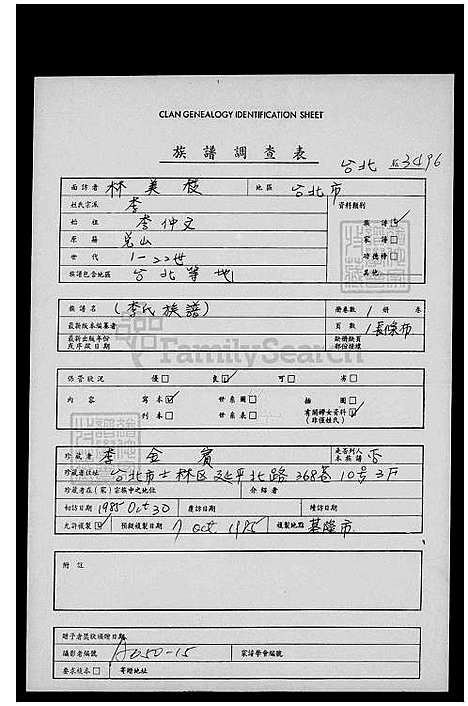 CLAN GENEALOGY IDENTIFICATION SHEET
族譜調查表
台北 3496
面訪者 林美枝 地區 台北市
姓氏宗派 李 資料類別
始祖 李仲文 族譜☑
原籍 兌山 家譜□
世代 1-22世 功德榜□
族譜包含地區 台北等地 其他
族譜名 (李氏族譜) 冊卷數 1 冊 卷
最新版本編纂者 頁數 1長條布
最新出版年份 缺冊缺頁
及序跋日期 部份種樣
FamilySearch
保管狀況 優□ 良☑ 可□ 劣□
內容 寫本☑ 世系圖□ 插圖□
刊本□ 世系表□ 有關婦女資料☑
(非僅姓氏)
珍藏者 李金賓 是否列入本族譜 否
珍藏者住址 台北市士林区延平北路368巷10号3F
珍藏者在(家)宗族中之地位 介紹者
初訪日期 1985 Oct 30 覆訪日期 續訪日期
允許複製☑ 預擬複製日期 7 Oct 1985 複製地點 基隆市
附註
贈予者獎狀頒贈日期
攝影者編號 A050-15 家譜學會編號
要求校本□ 寄贈地址